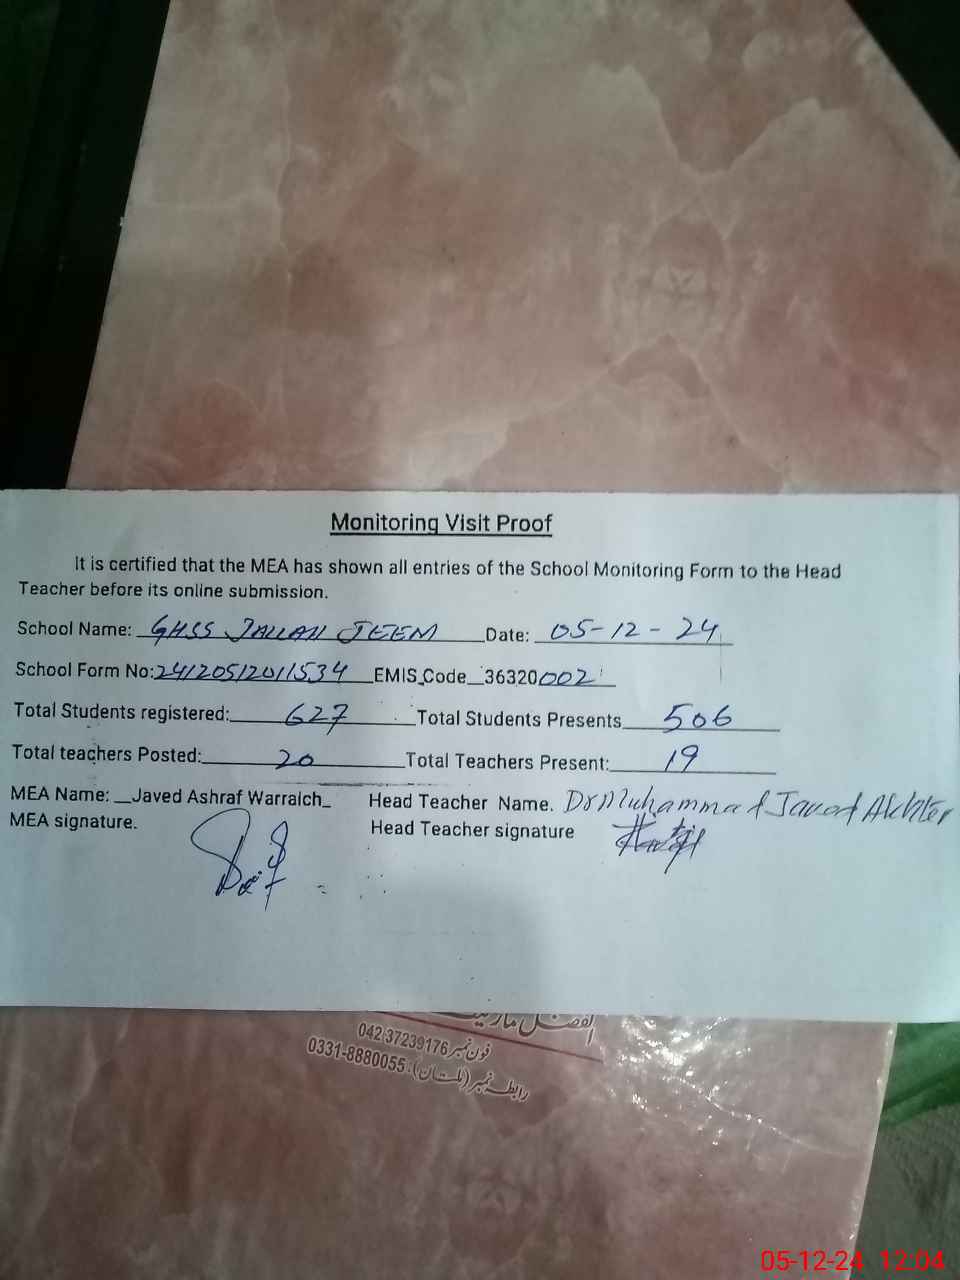 Monitoring Visit Proof
It is certified that the MEA has shown all entries of the School Monitoring Form to the Head
Teacher before its online submission.
School Name: GHSS JALLAH JEEM Date: 05-12-24
School Form No: 24120512011534 EMIS Code 36320002
Total Students registered: 627 Total Students Presents 506
Total teachers Posted: 20 Total Teachers Present: 19
MEA Name: Javed Ashraf Warraich Head Teacher Name. Dr Muhammad Javed Akhter
MEA signature. Head Teacher signature
فون نمبر 042 37239176
رابطہ نمبر (ملتان): 0331-8880055
05-12-24 12:04